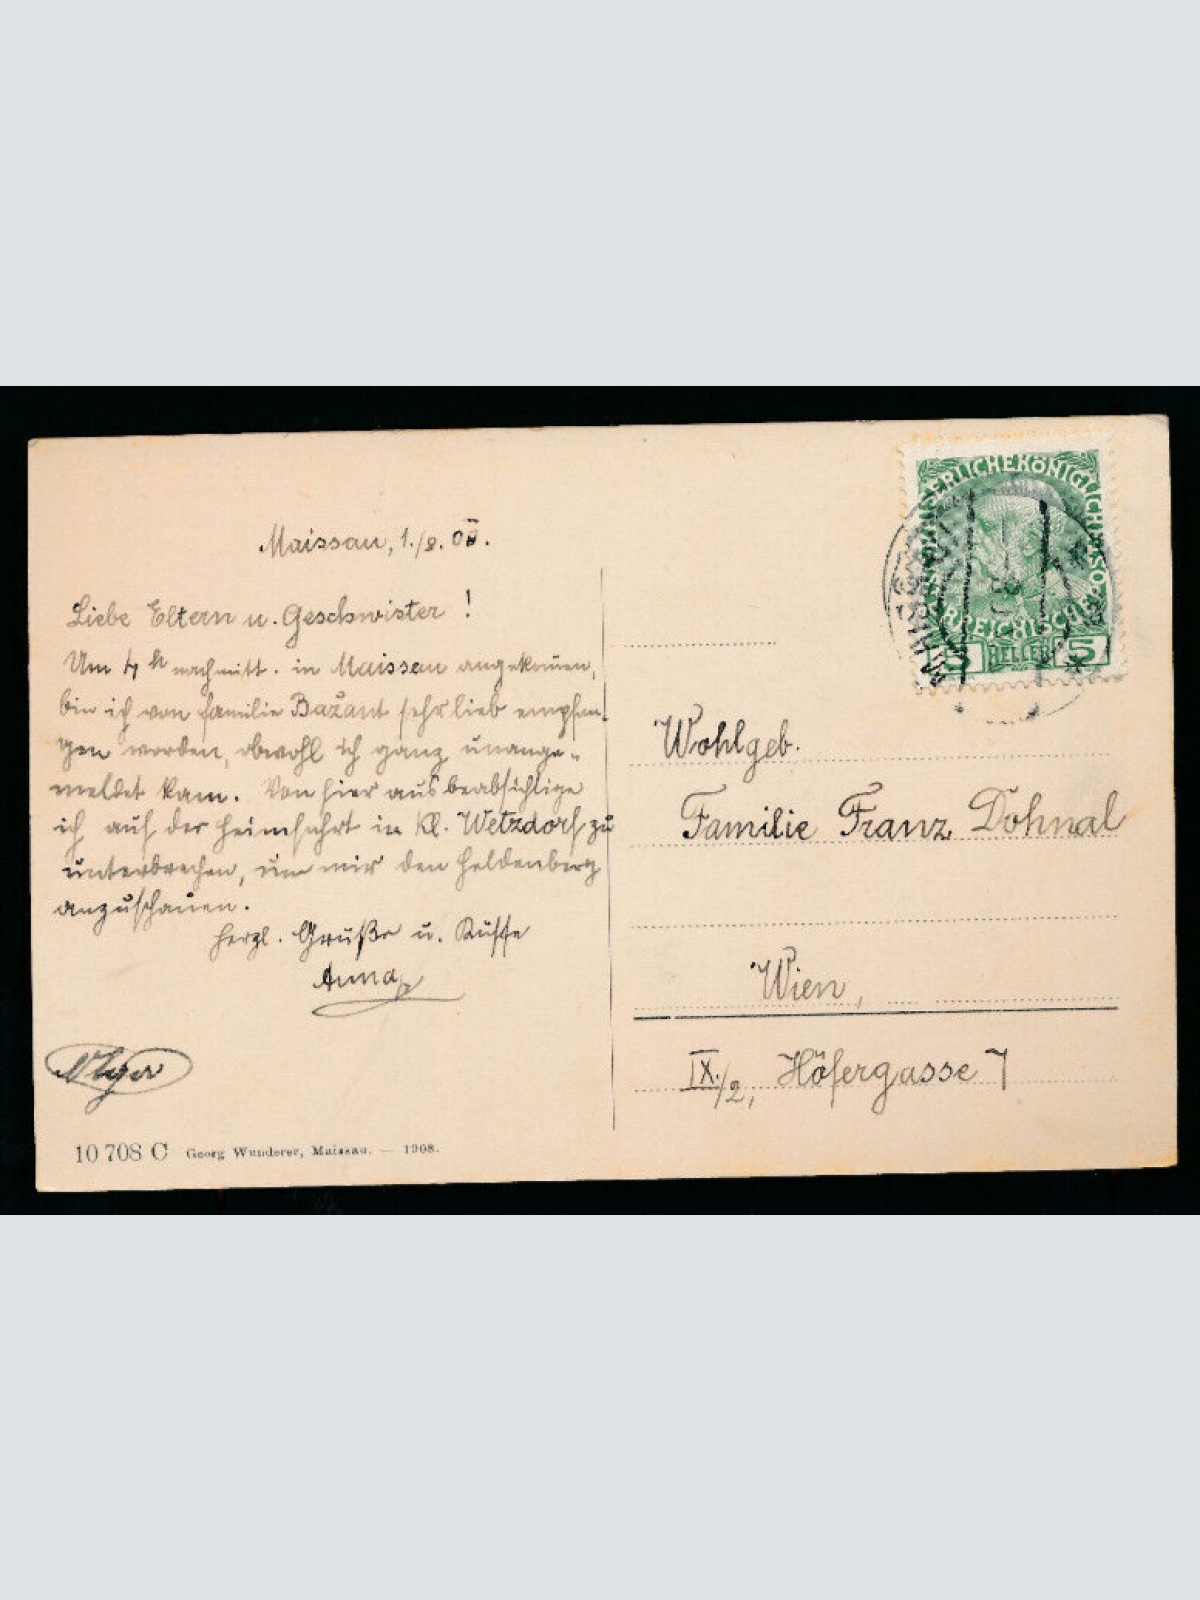 Maissau, 1./8. 08.
Liebe Eltern u. Geschwister!
Um 4 h nachmitt. in Maissau angekom̅en,
bin ich von Familie Bažant sehr lieb empfan-
gen worden, obwohl ich ganz unange-
meldet kam. Von hier aus beabsichtige
ich auf der Heimfahrt in Kl. Wetzdorf zu
unterbrechen, um mir den Heldenberg
anzuschauen.
Herzl. Grüße u. Küsse
Anna
10 708 C Georg Wunderer, Maissau. — 1908.
KAISERLICHE KÖNIGLICHE ÖSTERREICHISCHE
5 HELLER 5
Wohlgeb.
Familie Franz Dohnal
Wien,
IX./2, Höfergasse 7